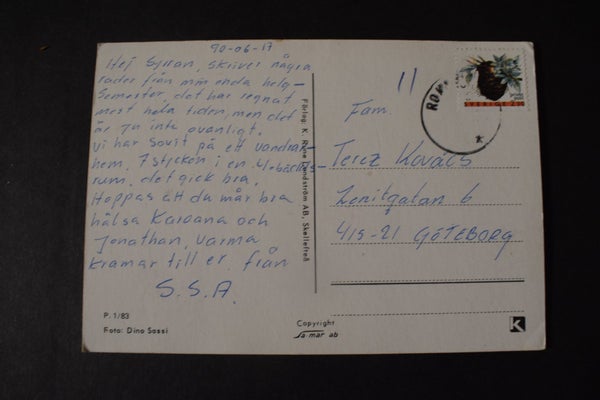 90-06-17
Hej Syrran, skriver några
rader från min enda helg-
Semester, det har regnat
mest hela tiden, men det
är ju inte ovanligt.
Vi har Sovit på ett vandrar-
hem. 7 stycken i en 4-bädds-
rum, det gick bra.
Hoppas att du mår bra
hälsa Karoana och
Jonathan, varma
kramar till er från
S.S.A.
P. 1/83
Foto: Dino Sassi
Förlag: K. Rune Lundström AB, Skellefteå
Copyright
Sa mar ab
SVERIGE
Fam.
Terez Kovács
Zenitgatan 6
415-21 GÖTEBORG
K